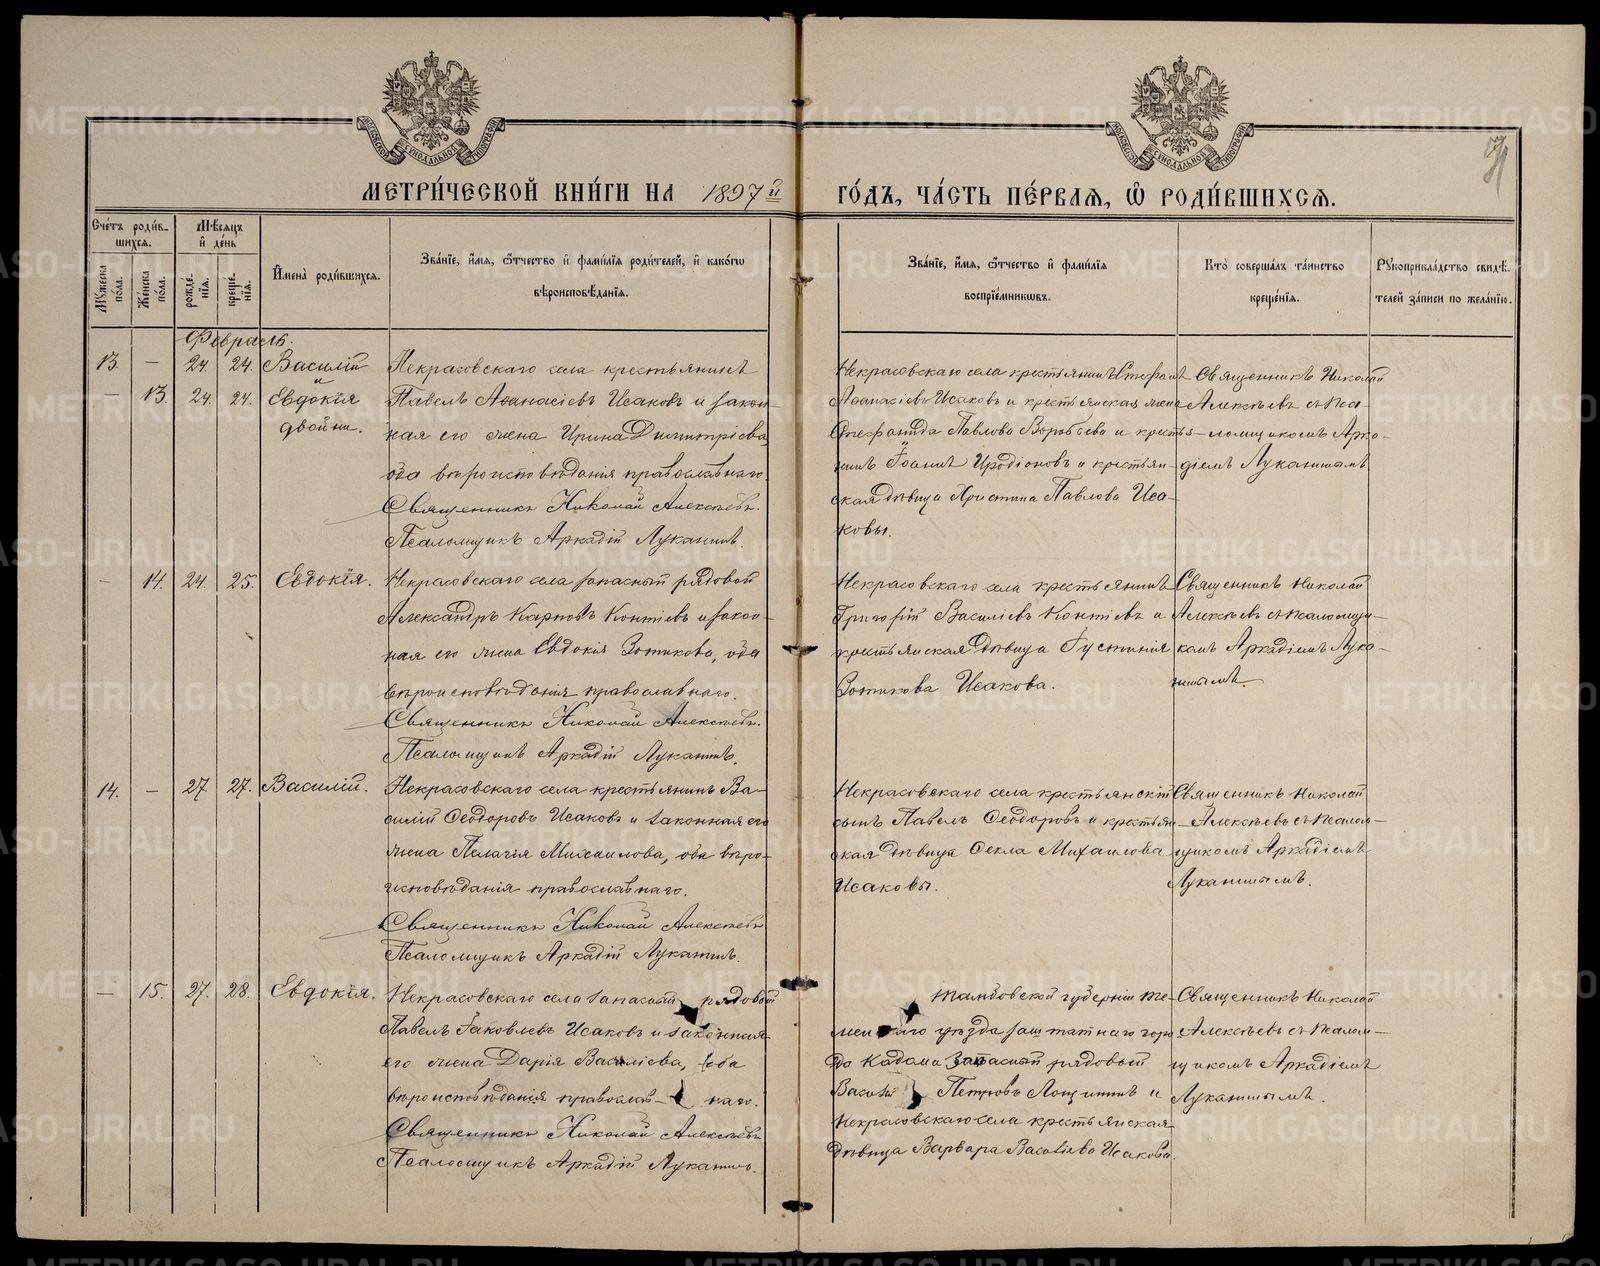 МОСКОВСКОЙ СѴНОДАЛЬНОЙ ТИПОГРАФІИ
МОСКОВСКОЙ СѴНОДАЛЬНОЙ ТИПОГРАФІИ
МЕТРИ́ЧЕСКОЙ КНИ́ГИ НА 1897й ГО́ДЪ, ЧА́СТЬ ПЕ́РВАѦ, Ѡ҆ РОДИ́ВШИХСѦ.
Сче́тъ роди́в-
шихсѧ.
Мѣ́сѧцъ
и҆ де́нь
Мꙋ́жеска по́ла.
Же́нска по́ла.
рожде́-
нїѧ.
креще́-
нїѧ.
И҆мена̀ роди́вшихсѧ.
Зва́нїе, и҆́мѧ, ѻ҆́тчество и҆ фами́лїѧ роди́телей, и҆ како́гѡ
вѣроисповѣ́данїѧ.
Зва́нїе, и҆́мѧ, ѻ҆́тчество и҆ фами́лїѧ
воспрїе́мникѡвъ.
Кто̀ соверша́лъ та́инство
креще́нїѧ.
Рꙋкоприкла́дство свидѣ́-
телей за́писи по жела́нїю.
Февраль.
13. — 24. 24. Василій
и
— 13. 24. 24. Евдокія
двойни.
Некрасовскаго села крестьянинъ
Павелъ Аѳанасіевъ Исаковъ и закон-
ная его жена Ирина Димитріева,
оба вѣроисповѣданія православнаго.
Священникъ Николай Алексѣевъ.
Псаломщикъ Аркадій Луканинъ.
Некрасовскаго села крестьянинъ Стефанъ
Аѳанасіевъ Исаковъ и крестьянская жена
Стефанида Павлова Воробьева и крестья-
нинъ Іоаннъ Иродіоновъ и крестьян-
ская дѣвица Христина Павлова Иса-
ковы.
Священникъ Николай
Алексѣевъ съ Пса-
ломщикомъ Арка-
діемъ Луканинымъ
— 14. 24. 25. Евдокія.
Некрасовскаго села запасный рядовой
Александръ Карповъ Контіевъ и закон-
ная его жена Евдокія Зотикова, оба
вѣроисповѣданія православнаго.
Священникъ Николай Алексѣевъ.
Псаломщикъ Аркадій Луканинъ.
Некрасовскаго села крестьянинъ
Григорій Василіевъ Контіевъ и
крестьянская дѣвица Іустинія
Зотикова Исакова.
Священникъ Николай
Алексѣевъ съ Псаломщи-
комъ Аркадіемъ Лука-
нинымъ
14. — 27 27. Василій.
Некрасовскаго села крестьянинъ Ва-
силій Ѳеодоровъ Исаковъ и законная его
жена Пелагія Михаилова, оба вѣро-
исповѣданія православнаго.
Священникъ Николай Алексѣевъ
Псаломщикъ Аркадій Луканинъ.
Некрасовскаго села крестьянскій
сынъ Павелъ Ѳеодоровъ и крестьян-
ская дѣвица Ѳекла Михаилова
Исаковы.
Священникъ Николай
Алексѣевъ съ Псалом-
щикомъ Аркадіемъ
Луканинымъ.
— 15. 27. 28. Евдокія.
Некрасовскаго села запасный рядовой
Павелъ Іаковлевъ Исаковъ и законная
его жена Дарія Василіева, оба
вѣроисповѣданія православ- наго.
Священникъ Николай Алексѣевъ
Псаломщикъ Аркадій Луканинъ.
Тамбовской губерніи Те-
заштатнаго горо-
да Кадома запасный рядовый
Петровъ Лощининъ и
Некрасовскаго села крестьянская
дѣвица Варвара Василіева Исакова.
Священникъ Николай
Алексѣевъ съ Псалом-
щикомъ Аркадіемъ
Луканинымъ.
METRIKI.GASO-URAL.RU